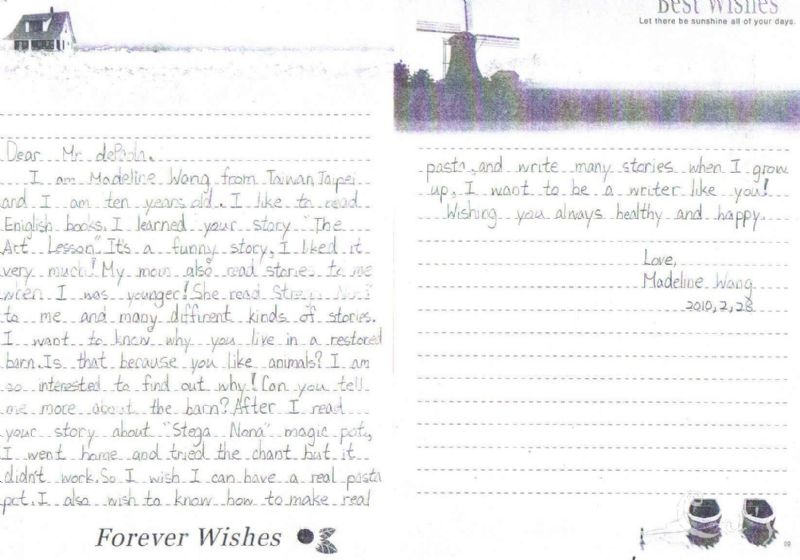 Dear Mr. dePaola,
I am Madeline Wang from Taiwan, Taipei
and I am ten years old. I like to read
Eniglish books. I learned your story "The
Art Lesson". It's a funny story, I liked it
very much! My mom also read stories to me
when I was younger! She read Strega Nona
to me and many different kinds of stories.
I want to know why you live in a restored
barn. Is that because you like animals? I am
so interested to find out why! Can you tell
me more about the barn? After I read
your story about "Stega Nona" magic pot,
I went home and tried the chant but it
didn't work. So I wish I can have a real pasta
pot. I also wish to know how to make real
Forever Wishes
Best Wishes
Let there be sunshine all of your days.
pasta, and write many stories when I grow
up. I want to be a writer like you!
Wishing you always healthy and happy.
Love,
Madeline Wang
2010,2,28